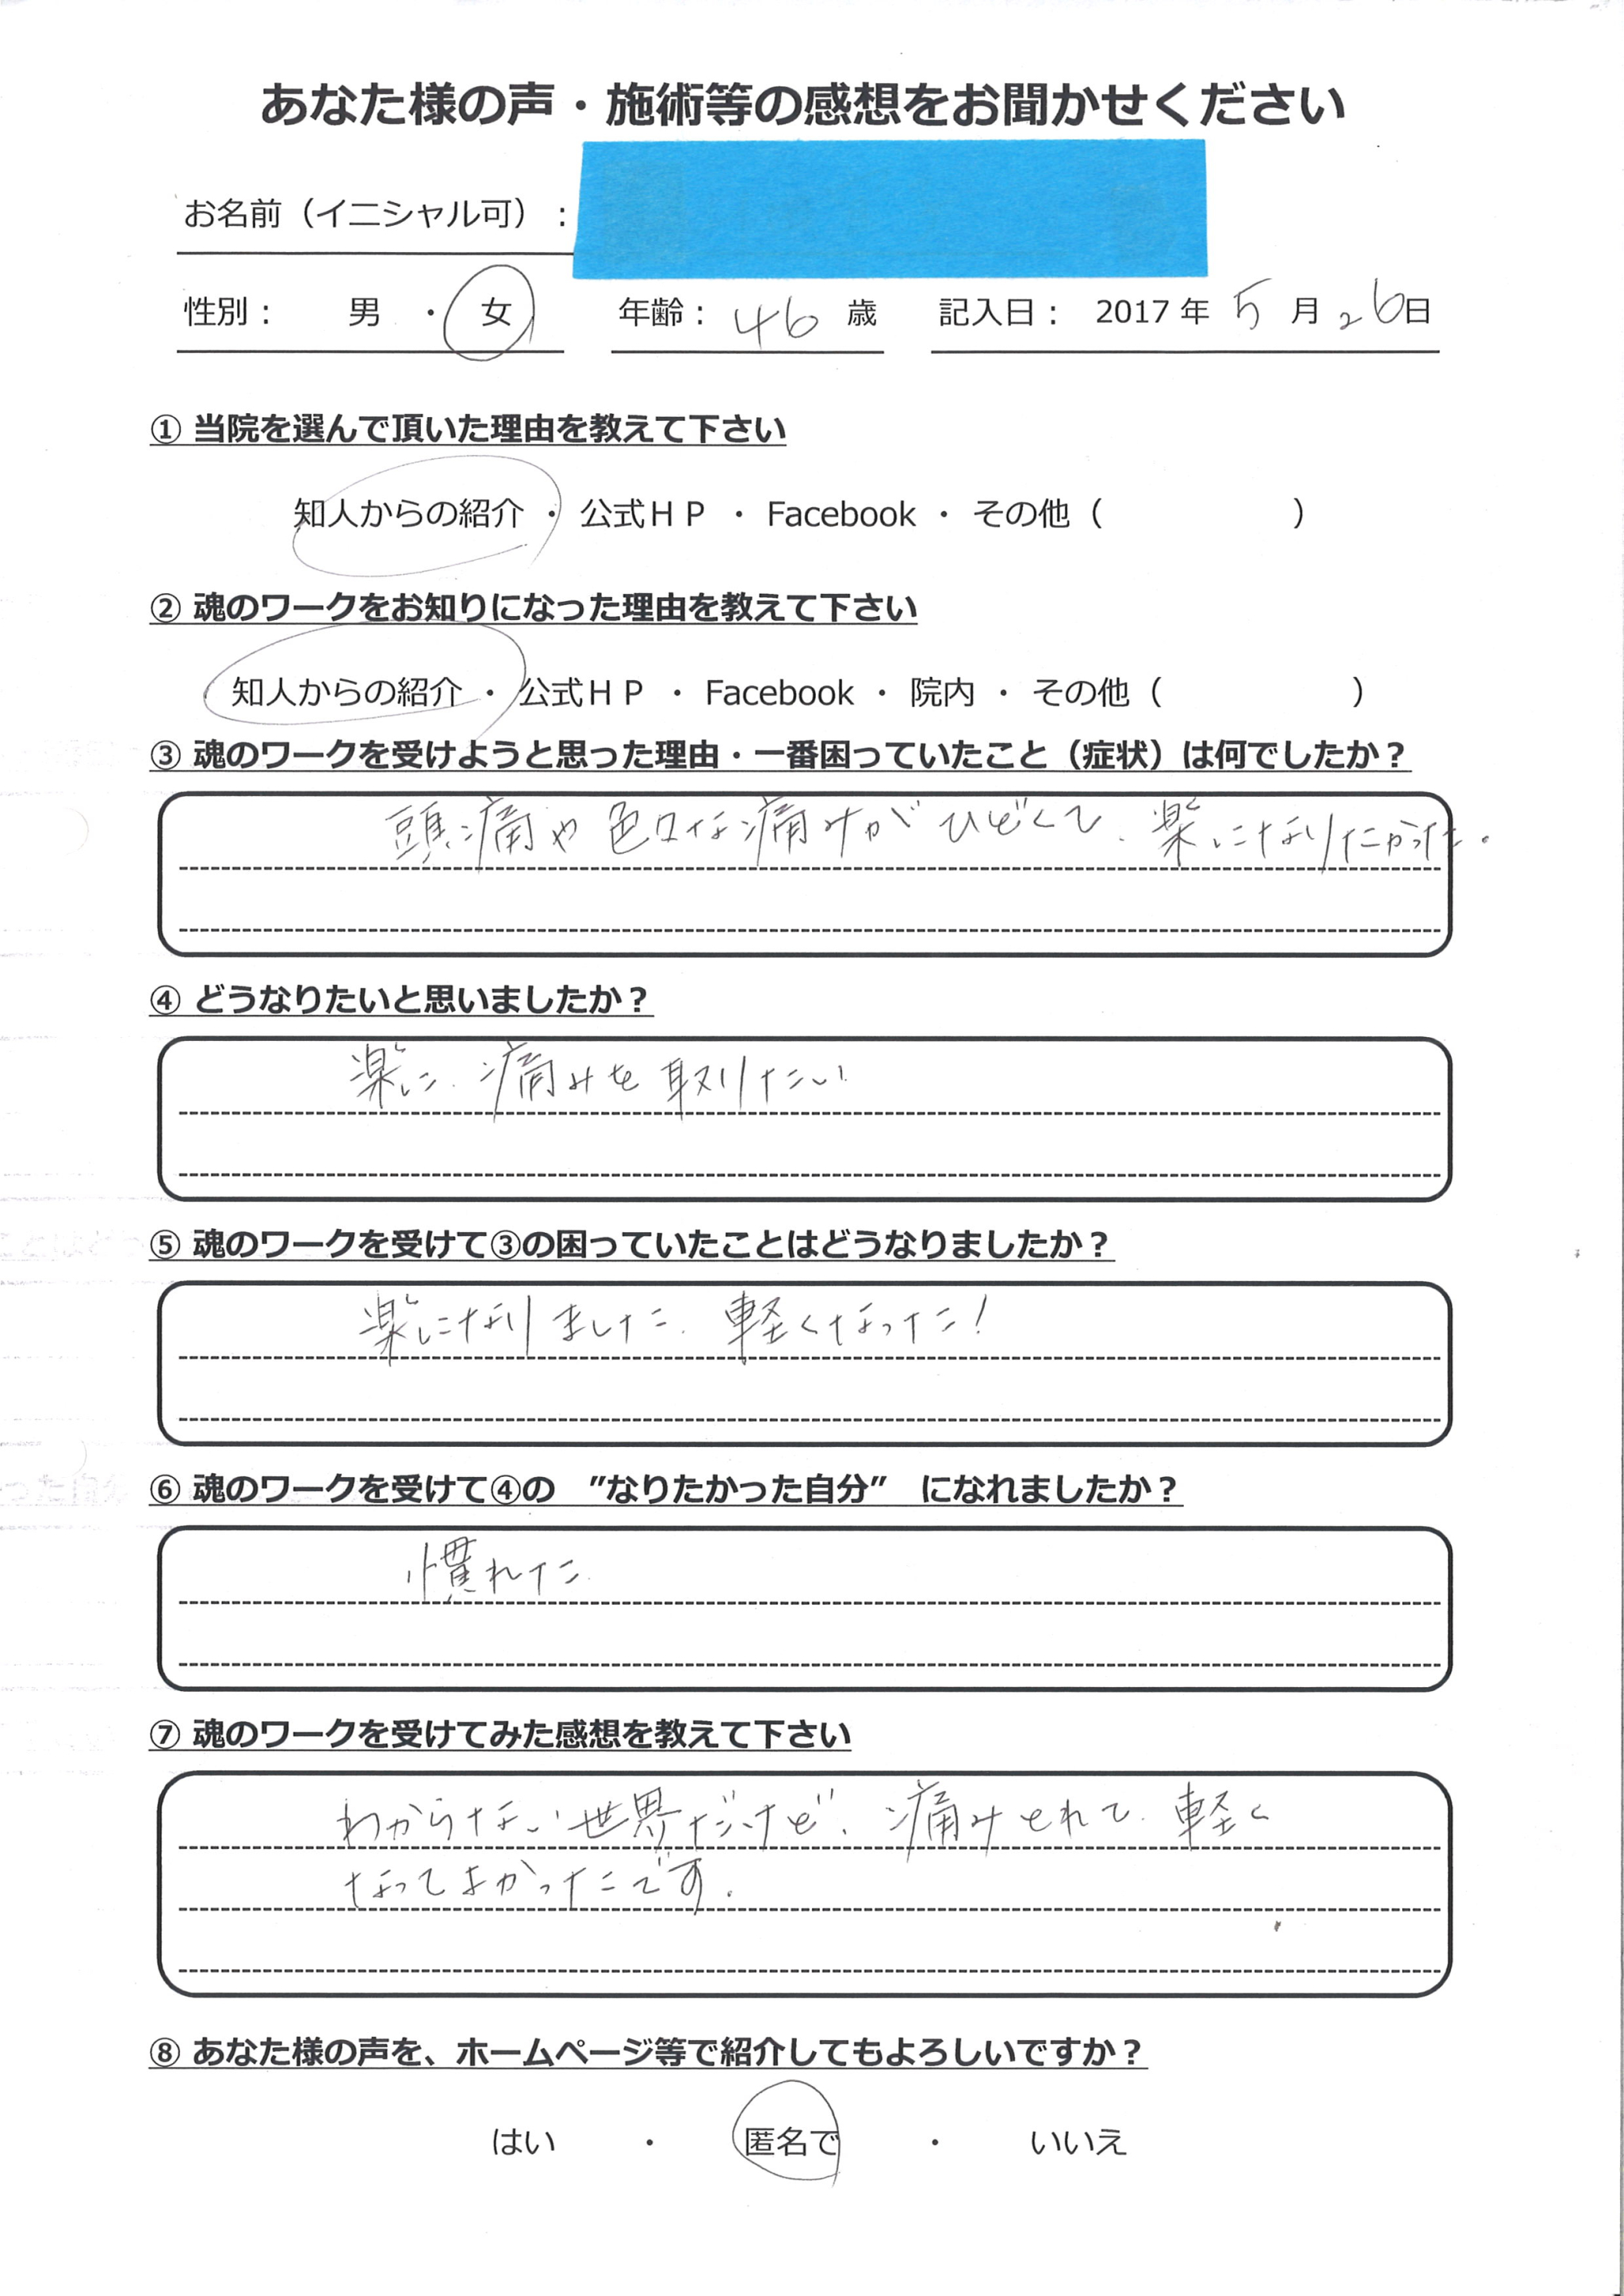 あなた様の声・施術等の感想をお聞かせください
お名前（イニシャル可）：
性別： 男 ・ 女 年齢： 46 歳 記入日： 2017 年 5 月 26日
① 当院を選んで頂いた理由を教えて下さい
知人からの紹介 ・ 公式ＨＰ ・ Facebook ・ その他（ ）
② 魂のワークをお知りになった理由を教えて下さい
知人からの紹介 ・ 公式ＨＰ ・ Facebook ・ 院内 ・ その他（ ）
③ 魂のワークを受けようと思った理由・一番困っていたこと（症状）は何でしたか？
頭痛や色々な痛みがひどくて、楽になりたかった。
④ どうなりたいと思いましたか？
楽に、痛みを取りたい
⑤ 魂のワークを受けて③の困っていたことはどうなりましたか？
楽になりました。軽くなった！
⑥ 魂のワークを受けて④の ”なりたかった自分” になれましたか？
慣れた
⑦ 魂のワークを受けてみた感想を教えて下さい
わからない世界だけど、痛みとれて、軽く
なってよかったです。
⑧ あなた様の声を、ホームページ等で紹介してもよろしいですか？
はい ・ 匿名で ・ いいえ